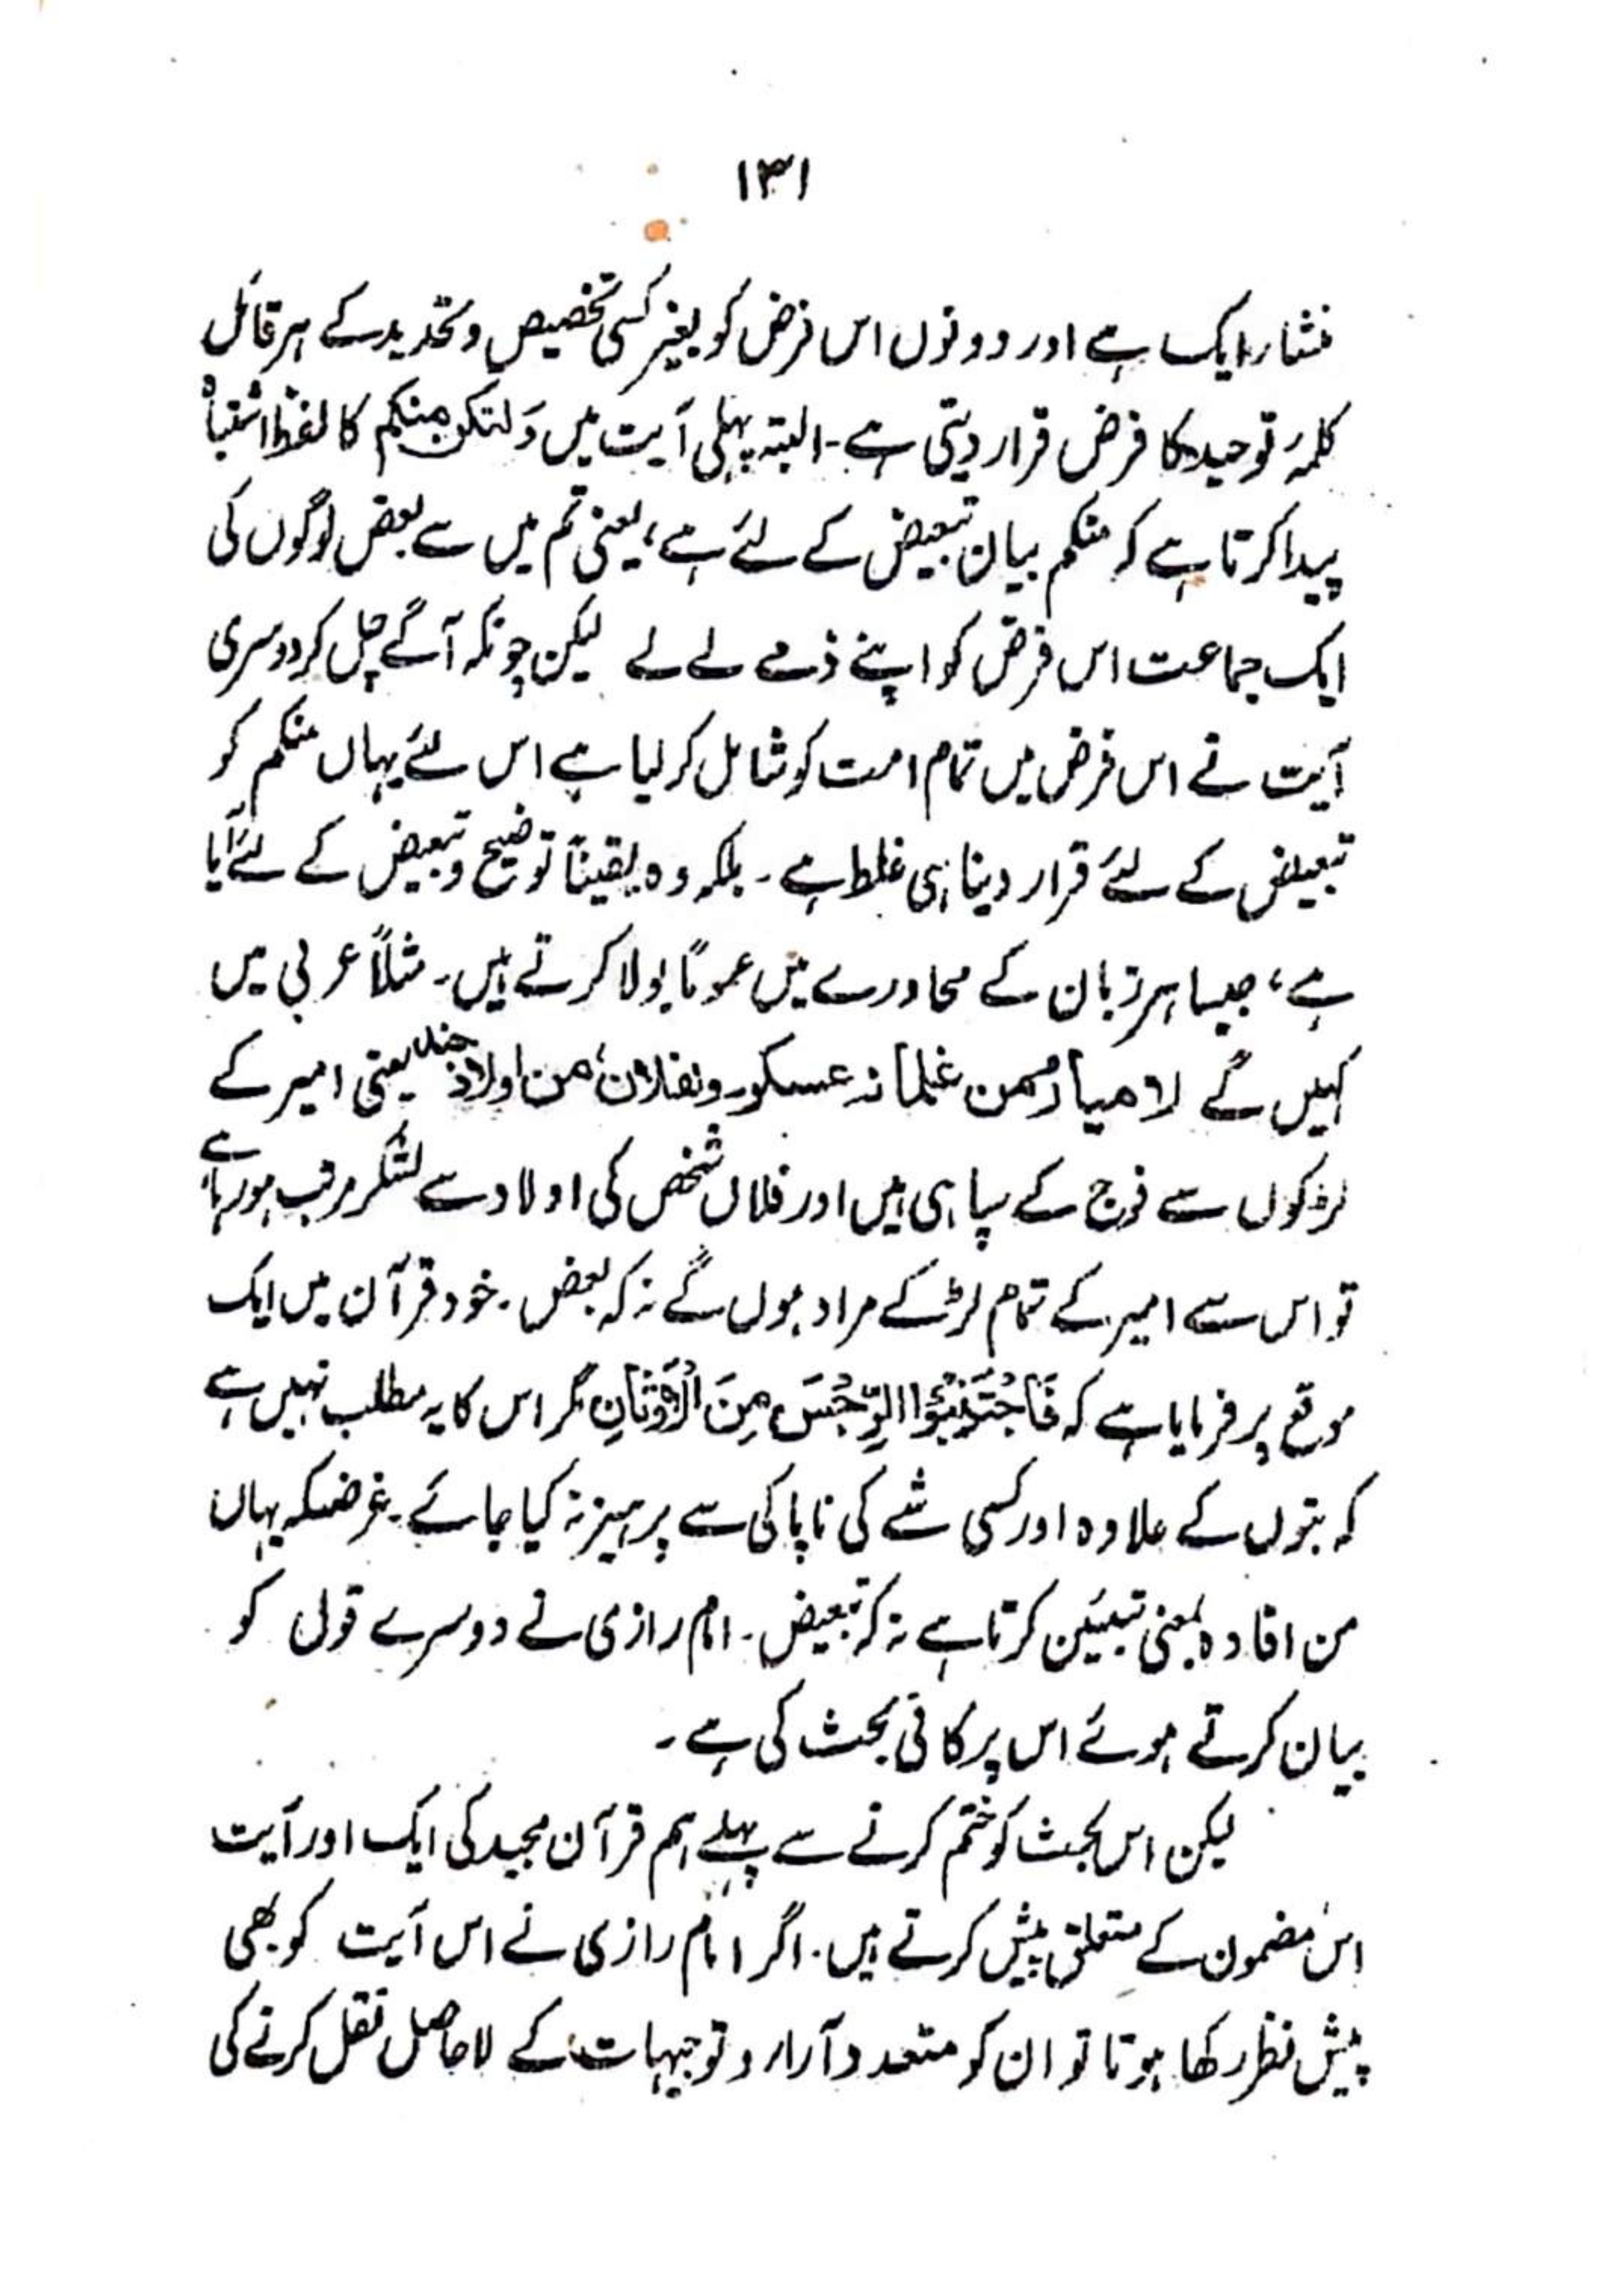 ۱۳۱
منشار ایک ہے اور دونوں اس فرض کو بغیر کسی تخصیص و تحدید کے ہر قائل
کلمۂ توحید کا فرض قرار دیتی ہے۔ البتہ پہلی آیت میں وَلتکن منکم کا لفظ اشتباہ
پیدا کرتا ہے کہ منکم بیان تبعیض کے لئے ہے، یعنی تم میں سے بعض لوگوں کی
ایک جماعت اس فرض کو اپنے ذمے لے لے لیکن چونکہ آگے چل کر دوسری
آیت نے اس فرض میں تمام امت کو شامل کر لیا ہے اس لئے یہاں منکم کو
تبعیض کے لئے قرار دینا ہی غلط ہے۔ بلکہ وہ یقیناً توضیح و تبعیض کے لئے آیا
ہے، جیسا ہر زبان کے محاورے میں عموماً بولا کرتے ہیں۔ مثلاً عربی میں
کہیں گے لامیار من غلمانہ عسکور و نفلان، من اولاد جند یعنی امیر کے
لڑکوں سے فوج کے سپاہی ہیں اور فلاں شخص کی اولاد سے لشکر مرتب ہو رہا ہے
تو اس سے امیر کے تمام لڑکے مراد ہوں گے نہ کہ بعض۔ خود قرآن میں ایک
موقع پر فرمایا ہے کہ فَاجْتَنِبُوا الرِّجْسَ مِنَ الْاَوْثَانِ مگر اس کا یہ مطلب نہیں ہے
کہ بتوں کے علاوہ اور کسی شے کی ناپاکی سے پرہیز نہ کیا جائے۔ غرضکہ یہاں
من افادہ بمعنی تبیئن کرتا ہے نہ کہ تبعیض۔ امام رازی نے دوسرے قول کو
بیان کرتے ہوئے اس پر کافی بحث کی ہے۔
لیکن اس بحث کو ختم کرنے سے پہلے ہم قرآن مجید کی ایک اور آیت
اس مضمون کے متعلق پیش کرتے ہیں۔ اگر امام رازی نے اس آیت کو بھی
پیش نظر رکھا ہوتا تو ان کو متعدد آرار و توجیہات کے لاحاصل نقل کرنے کی